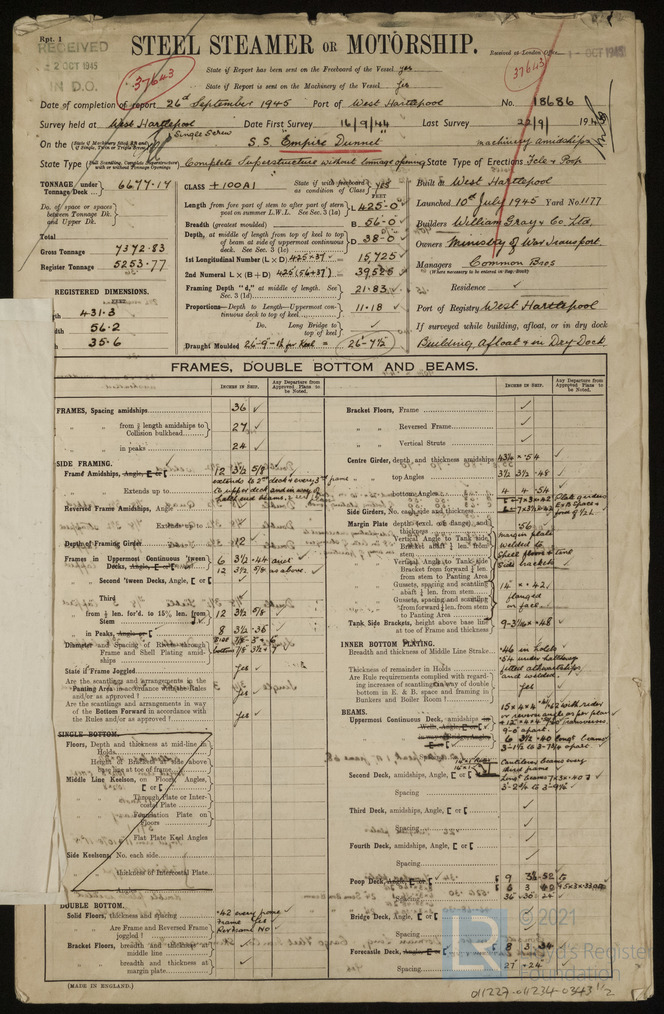 Rpt. 1
RECEIVED
2 OCT 1945
IN D.O.
STEEL STEAMER OR MOTORSHIP.
Received at London Office
1 - OCT 1945
37643
37643
State if Report has been sent on the Freeboard of the Vessel yes
State if Report is sent on the Machinery of the Vessel yes
Date of completion of report 26th September 1945 Port of West Hartlepool No. 18686
Survey held at West Hartlepool Date First Survey 16/9/44 Last Survey 22/9/ 19
On the Single Screw S.S. "Empire Dunnet" machinery amidships
State Type Complete Superstructure without tonnage opening State Type of Erections Fcle & Poop
TONNAGE under Tonnage Deck 6677.17
No. of space or spaces between Tonnage Dk. and Upper Dk.
Total
Gross Tonnage 7372.83
Register Tonnage 5253.77
REGISTERED DIMENSIONS.
431.3
56.2
35.6
CLASS +100A1 State if with freeboard as condition of Class yes
Length from fore part of stem to after part of stern post on summer L.W.L. See Sec. 3 (1a) L 425.0
Breadth (greatest moulded) B 56.0
Depth, at middle of length from top of keel to top of beam at side of uppermost continuous deck. See Sec. 3 (1c) D 38.0
1st Longitudinal Number (L × D) 425×37 = 15,725
2nd Numeral L × (B + D) 425(56+37) = 39,525
Framing Depth "d," at middle of length. See Sec. 3 (1d) 21.83
Proportions—Depth to Length—Uppermost continuous deck to top of keel 11.18
Do. Long Bridge to top of keel
Draught Moulded 26-7½
Built at West Hartlepool
Launched 10th July 1945 Yard No 1177
Builders William Gray & Co. Ltd.
Owners Ministry of War Transport
Managers Common Bros
(Where necessary to be entered in Reg. Book)
Residence
Port of Registry West Hartlepool
If surveyed while building, afloat, or in dry dock
Building, Afloat & in Dry Dock
FRAMES, DOUBLE BOTTOM AND BEAMS.
INCHES IN SHIP. Any Departure from Approved Plans to be Noted. INCHES IN SHIP. Any Departure from Approved Plans to be Noted.
FRAMES, Spacing amidships 36
" " from ⅕ length amidships to Collision bulkhead 27
" " in peaks 24
SIDE FRAMING.
Frame Amidships, Angle, [ or 12 3½ 5/8
Extends up to
Reversed Frame Amidships, Angle
Extends up to
Depth of Framing Girder 12
Frames in Uppermost Continuous 'tween Decks, Angle, [ or 6 3½ .44 and
12 3½ 5/8 as above
" Second 'tween Decks, Angle, [ or
" Third " " " "
" from ⅕ len. for'd. to 15% len. from Stem 12 3½ 5/8
" in Peaks, Angle or [ 8 3½ .36
Diameter and Spacing of Rivets through Frame and Shell Plating amidships
State if Frame Joggled Yes
Are the scantlings and arrangements in the Panting Area in accordance with the Rules and/or as approved? Yes
Are the scantlings and arrangements in way of the Bottom Forward in accordance with the Rules and/or as approved? Yes
SINGLE BOTTOM.
Floors, Depth and thickness at mid-line in Holds
Height of Brackets at side above base line at toe of frame
Middle Line Keelson, on Floors, Angles, [ or
" " Through Plate or Intercostal Plate
" " Foundation Plate on Floors
" " Flat Plate Keel Angles
Side Keelsons, No. each side
" " thickness of Intercostal Plate
" " Angle
DOUBLE BOTTOM.
Solid Floors, thickness and spacing .42 every frame
" " Are Frame and Reversed Frame joggled? Frame Yes
Rev. Frame No
Bracket Floors, breadth and thickness at middle line
" " breadth and thickness at margin plate
Bracket Floors, Frame
" " Reversed Frame
" " Vertical Struts
Centre Girder, depth and thickness amidships 43¼ × .54
" " top Angles 3½ 3½ .48
" " bottom Angles 4 4 .54
Side Girders, No. each side and thickness
Margin Plate depth (excl. of flange) and thickness 56
" " Vertical Angle to Tank side Bracket abaft ¼ len. from stem
" " Vertical Angle to Tank side Bracket from forward ¼ len. from stem to Panting Area
margin plate welded to shell floors & tank side brackets
" " Gussets, spacing and scantling abaft ¼ len. from stem
" " Gussets, spacing and scantling from forward ¼ len. from stem to Panting Area
Tank Side Brackets, height above base line at toe of Frame and thickness
INNER BOTTOM PLATING.
Breadth and thickness of Middle Line Strake
Thickness of remainder in Holds .46 in holds
Are Rule requirements complied with regarding increases of scantlings in way of double bottom in E. & B. space and framing in Bunkers and Boiler Room? Yes
BEAMS.
Uppermost Continuous Deck, amidships
Second Deck, amidships, Angle, [ or
Spacing
Third Deck, amidships, Angle, [ or
Spacing
Fourth Deck, amidships, Angle, [ or
Spacing
Poop Deck, Angle, [ or
Spacing
Bridge Deck, Angle, [ or
Spacing
Forecastle Deck, Angle, [ or 8 3 .34
Spacing 27 - 24
(MADE IN ENGLAND.)
© 2021
Lloyd's Register
Foundation
011227-011234-0343 1/2